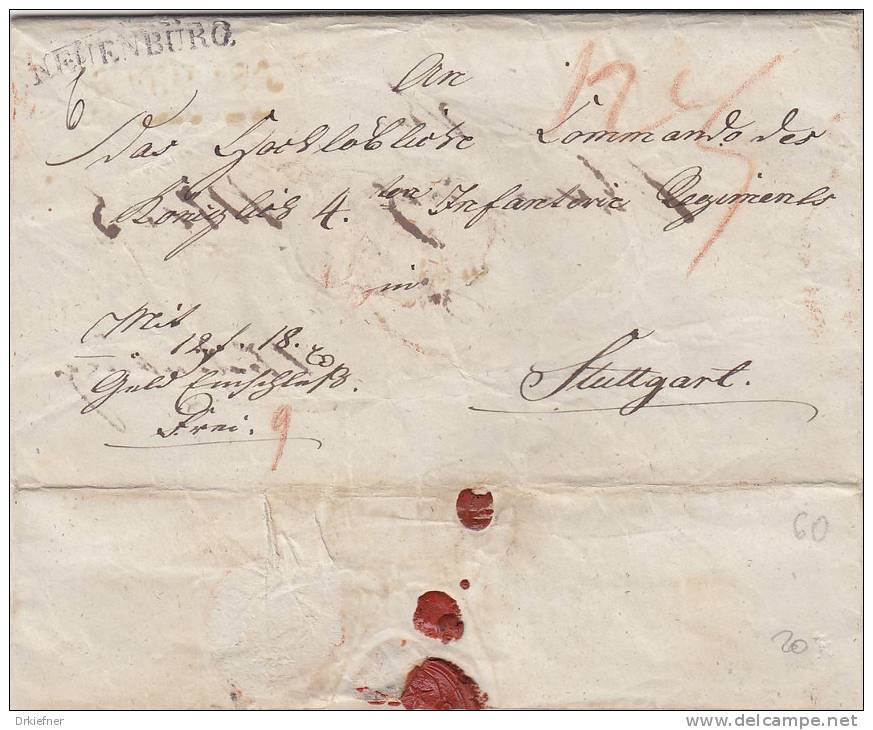 NEUENBÜRG.
An
Das Hochlöbliche Commando des
Königlich 4.ten Infanterie Regiments
in
Mit
12 f. 18. x
Geld Einschluß.
Frei.
Stuttgart.
9
60
20
Drkiefner
www.delcampe.net